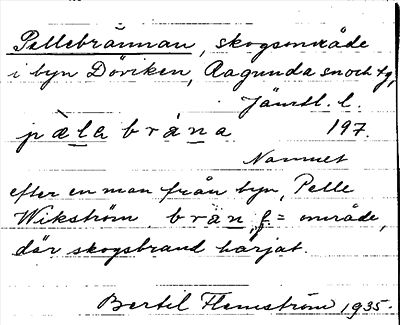 Pellebrännan, skogsområde
i byn Döviken, Ragunda sn och tg,
Jämtl. l.
pælabräna 197.
Namnet
efter en man från byn, Pelle
Wikström. brän, f = område,
där skogsbrand härjat.
Bertil Flemström 1935.